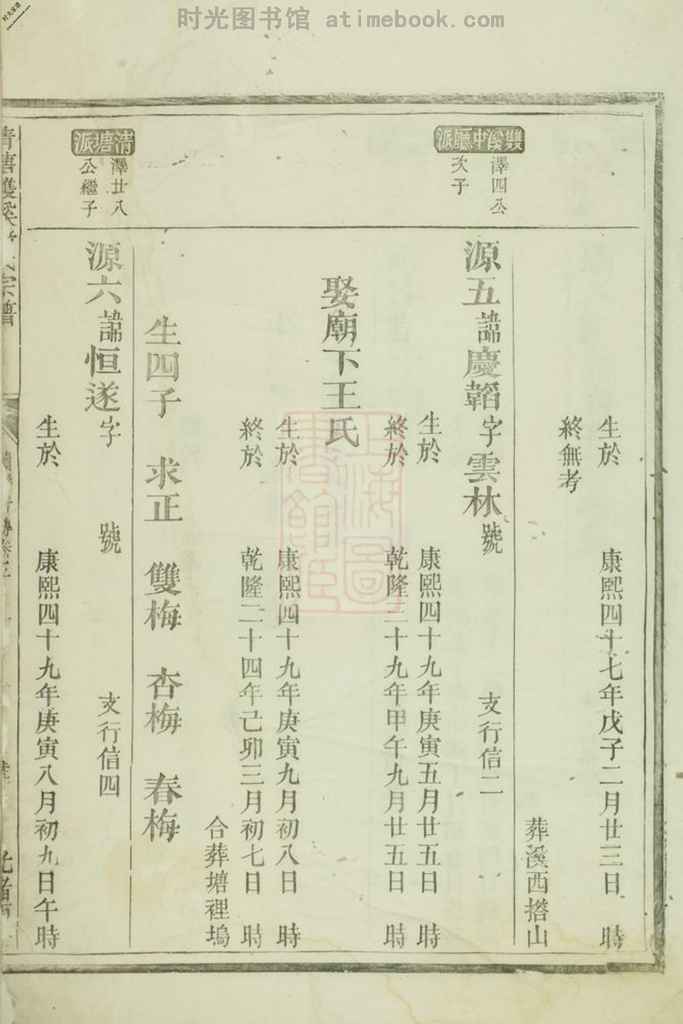 时光图书馆 atimebook.com
雙溪中廳派
澤四公
次子
清塘派
澤廿八
公繼子
生於 康熙四十七年戊子二月廿三日 時
終無考
葬溪西撘山
源五諱慶韜字雲林號 支行信二
生於 康熙四十九年庚寅五月廿五日 時
終於 乾隆三十九年甲午九月廿五日 時
娶廟下王氏
生於 康熙四十九年庚寅九月初八日 時
終於 乾隆二十四年己卯三月初七日 時
合葬塘裡塢
生四子 求正 雙梅 杏梅 春梅
源六諱恒遂字 號 支行信四
生於 康熙四十九年庚寅八月初九日午時
上海圖書館藏